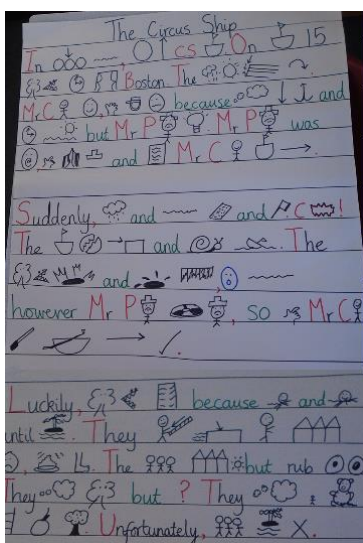 The Circus Ship
In cs On 15
Boston. The
Mr C because and
but Mr P Mr P was
and Mr C
Suddenly, and and C !
The and The
and
however Mr P , so Mr C
Luckily, because and
until They
The but rub
They but ? They
Unfortunately, X.